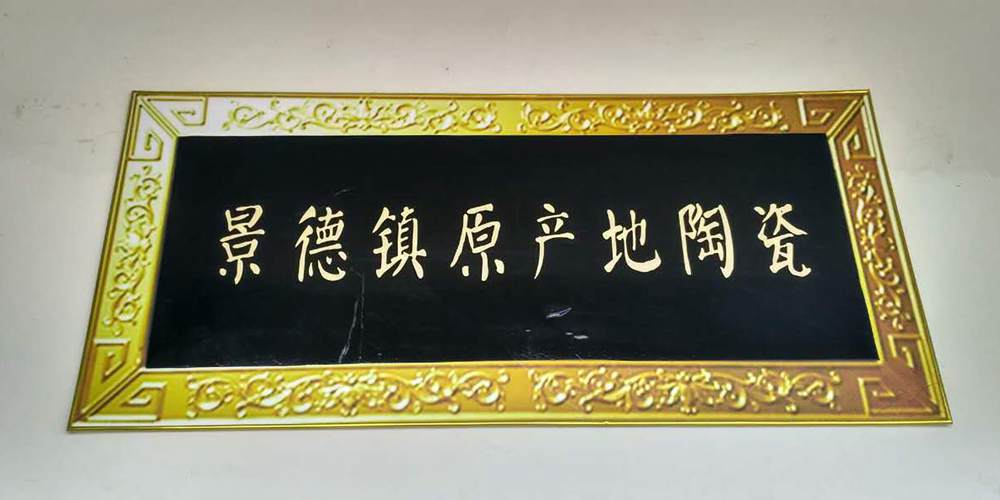 景德镇原产地陶瓷